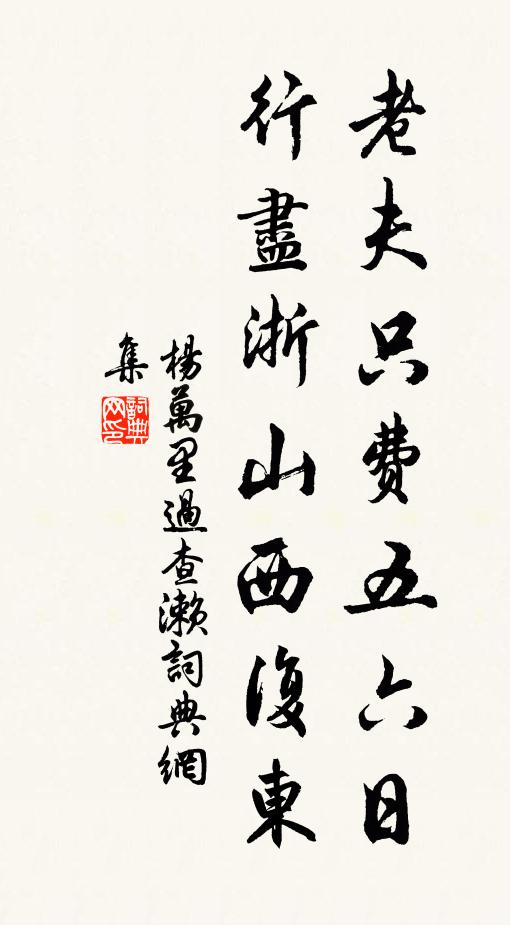 老夫只費五六日
行盡浙山西復東
楊萬里過查瀨詞典網
集
詞典網印